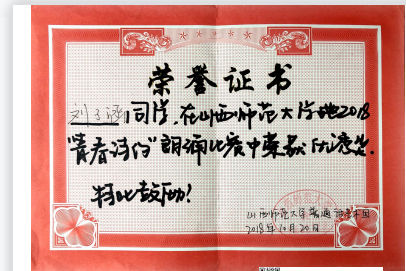 荣誉证书
刘子涵同学，在山西师范大学2018
"青春诗行"朗诵比赛中荣获优秀奖。
特此鼓励！
山西师范大学普通话
2018年10月20日